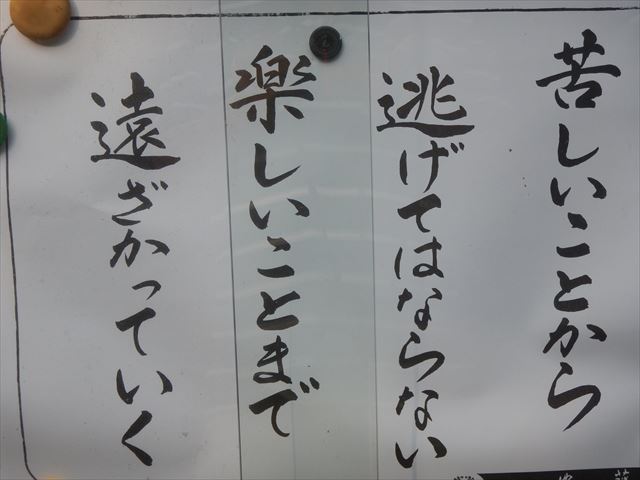 苦しいことから
逃げてはならない
楽しいことまで
遠ざかっていく